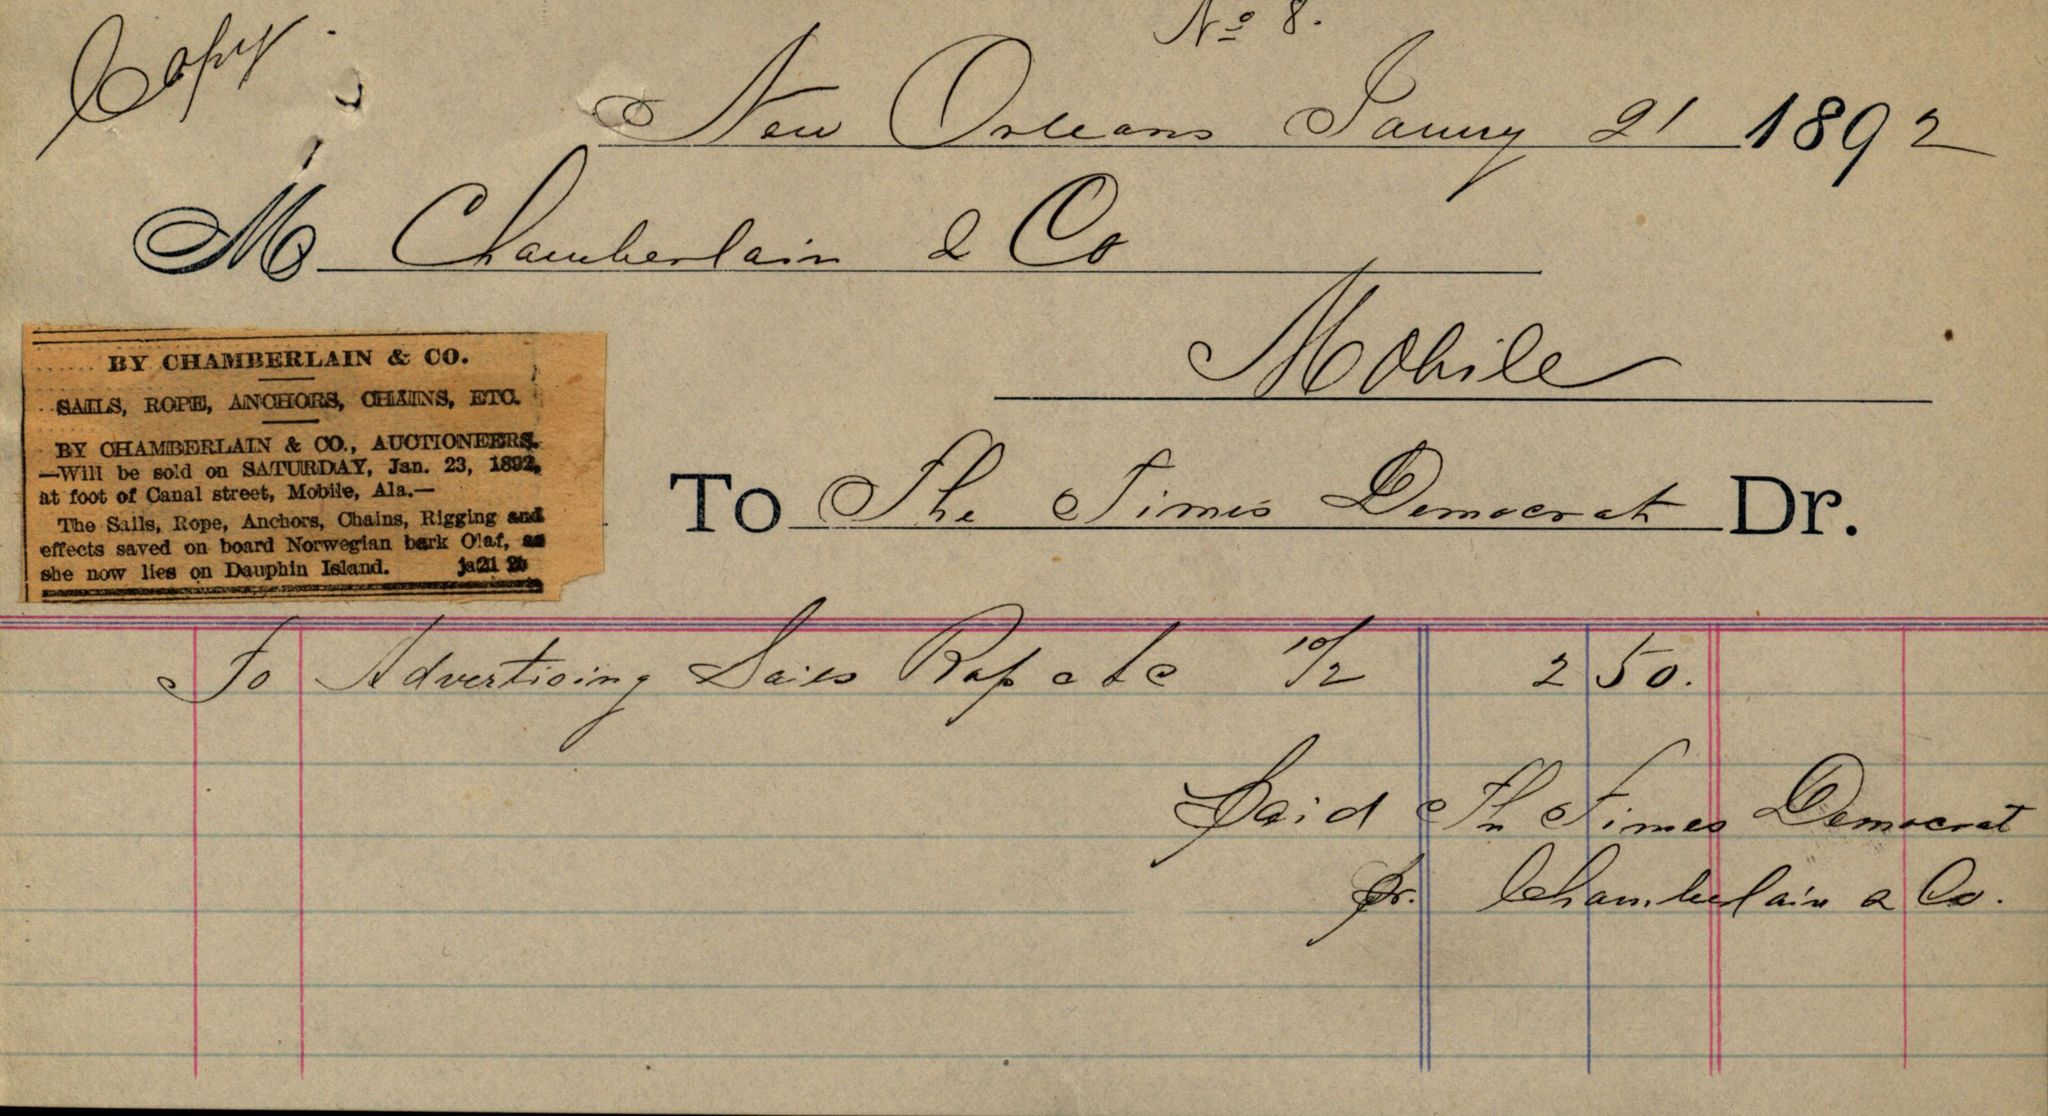 No 8.
Copy.
New Orleans Janny 21 1892
M Chamberlain & Co
Mobile
BY CHAMBERLAIN & CO.
SAILS, ROPE, ANCHORS, CHAINS, ETC.
BY CHAMBERLAIN & CO., AUCTIONEERS.
—Will be sold on SATURDAY, Jan. 23, 1892,
at foot of Canal street, Mobile, Ala.—
The Sails, Rope, Anchors, Chains, Rigging and
effects saved on board Norwegian bark Olaf, as
she now lies on Dauphin Island. ja21 2t
To The Times Democrat Dr.
To Advertising Sails Rop etc 10/2 2 50.
Paid Th Times Democrat
pr. Chamberlain & Co.